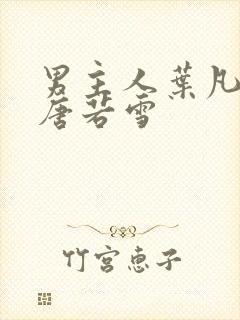 男主人葉凡
唐若雪
竹宮惠子